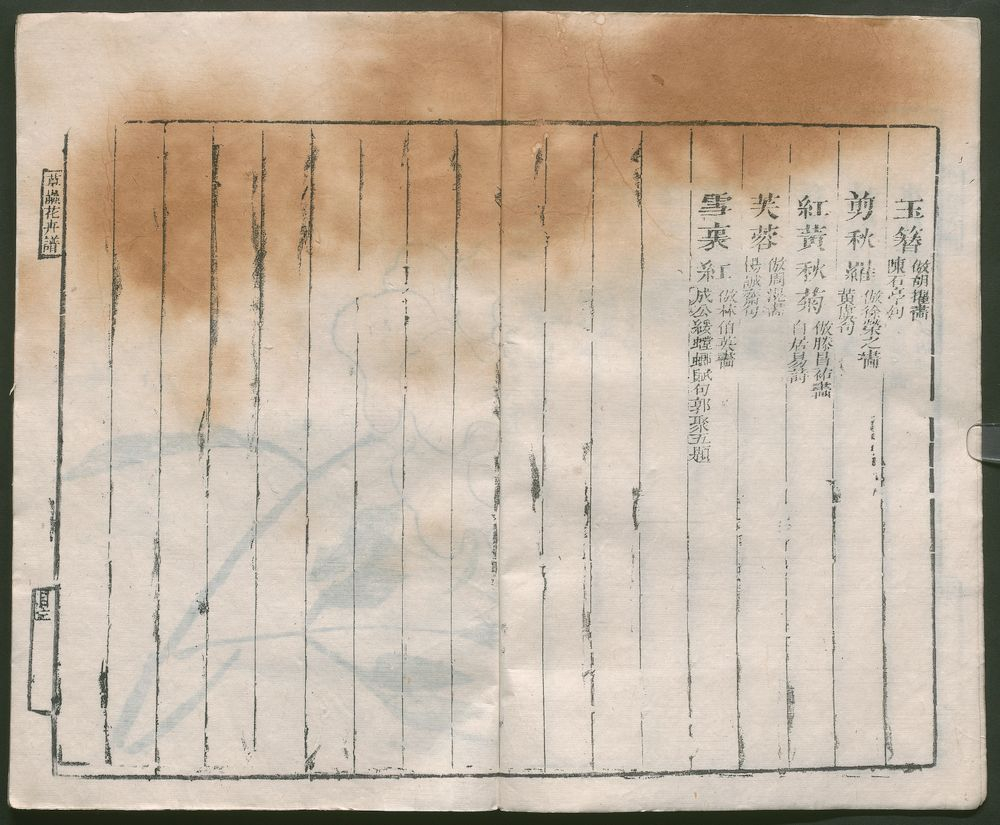 玉簪 倣胡擢畵
陳石亭句
剪秋羅 倣徐榮之畵
黃虞句
紅黃秋菊 倣滕昌祐畵
白居易詩
芙蓉 倣周滉畵
楊誠齋句
雪裏紅 倣林伯英畵
成公綏螳蜋賦句郭聚五題
草蟲花卉譜
目